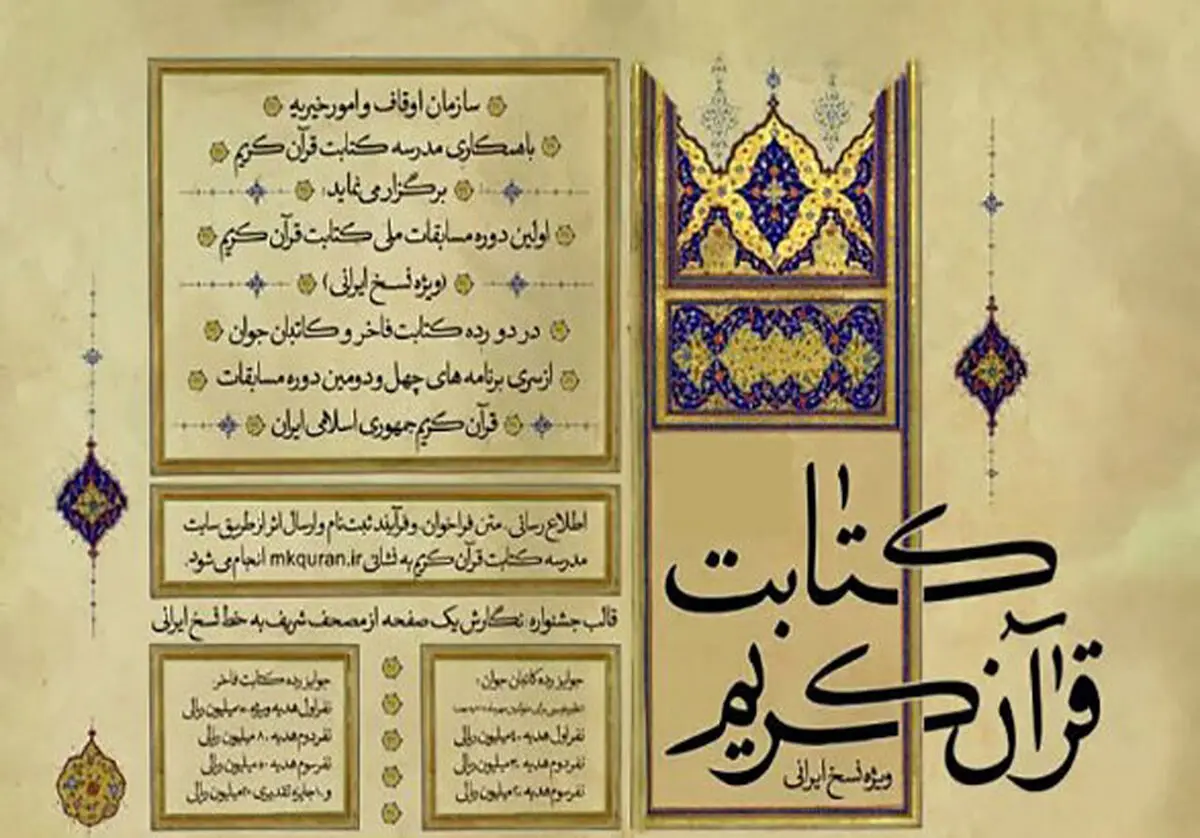 کتابت
قرآن کریم
ویژه نسخ ایرانی
سازمان اوقاف و امور خیریه
با همکاری مدرسه کتابت قرآن کریم
برگزار می نماید:
اولین دوره مسابقات ملی کتابت قرآن کریم
(ویژه نسخ ایرانی)
در دو رده کتابت فاخر و کاتبان جوان
از سری برنامه های چهل و دومین دوره مسابقات
قرآن کریم جمهوری اسلامی ایران
اطلاع رسانی، متن فراخوان، و فرآیند ثبت نام و ارسال اثر از طریق سایت
مدرسه کتابت قرآن کریم به نشانی mkquran.ir انجام می شود.
قالب جشنواره نگارش یک صفحه از مصحف شریف به خط نسخ ایرانی
جوایز رده کاتبان جوان:
نفر اول هدیه ۴۰ میلیون ریالی
نفر دوم هدیه ۳۰ میلیون ریالی
نفر سوم هدیه ۲۰ میلیون ریالی
جوایز رده کتابت فاخر:
نفر اول هدیه ویژه میلیون ریالی
نفر دوم هدیه ۸۰ میلیون ریالی
نفر سوم هدیه ۵۰ میلیون ریالی
و ۱۰ جایزه تقدیری ۲۰ میلیون ریالی